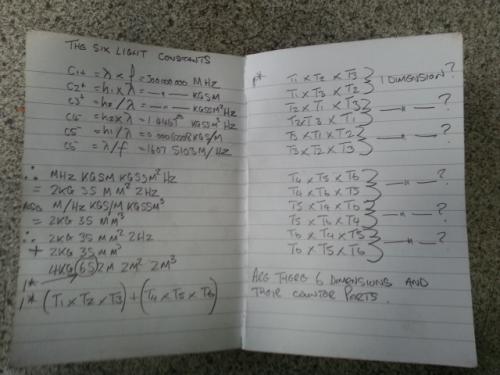 THE SIX LIGHT CONSTANTS
C1+ = λ × f = 300 000 000 MHZ
C2+ = h1 × λ = — 〃 — KGSM
C3+ = h2/λ = — 〃 — KGSSM²HZ
= h2 × λ =
C5- = h1/λ = KGS/M
= λ/f = M/HZ
∴ MHZ KGSM KGSSM²HZ
= 2KG 3S M M² 2HZ
ALSO M/HZ KGS/M KGSSM³
= 2KG 3S M M³
∴ 2KG 3S M M² 2HZ
+ 2KG 3S M M³
4KG(6S)2M 2M² 2M³
1*
1* (T1 × T2 × T3) + (T4 × T5 × T6)
1* T1 × T2 × T3
T1 × T3 × T2
1 DIMENSION?
T2 × T1 × T3
T2 × T3 × T1
— 〃 — ?
T3 × T1 × T2
T3 × T2 × T1
— 〃 — ?
T4 × T5 × T6
T4 × T6 × T5
— 〃 — ?
T5 × T4 × T6
T5 × T6 × T4
— 〃 — ?
T6 × T4 × T5
T6 × T5 ×
— 〃 — ?
ARE THERE 6 DIMENSIONS AND
THEIR COUNTER PARTS.